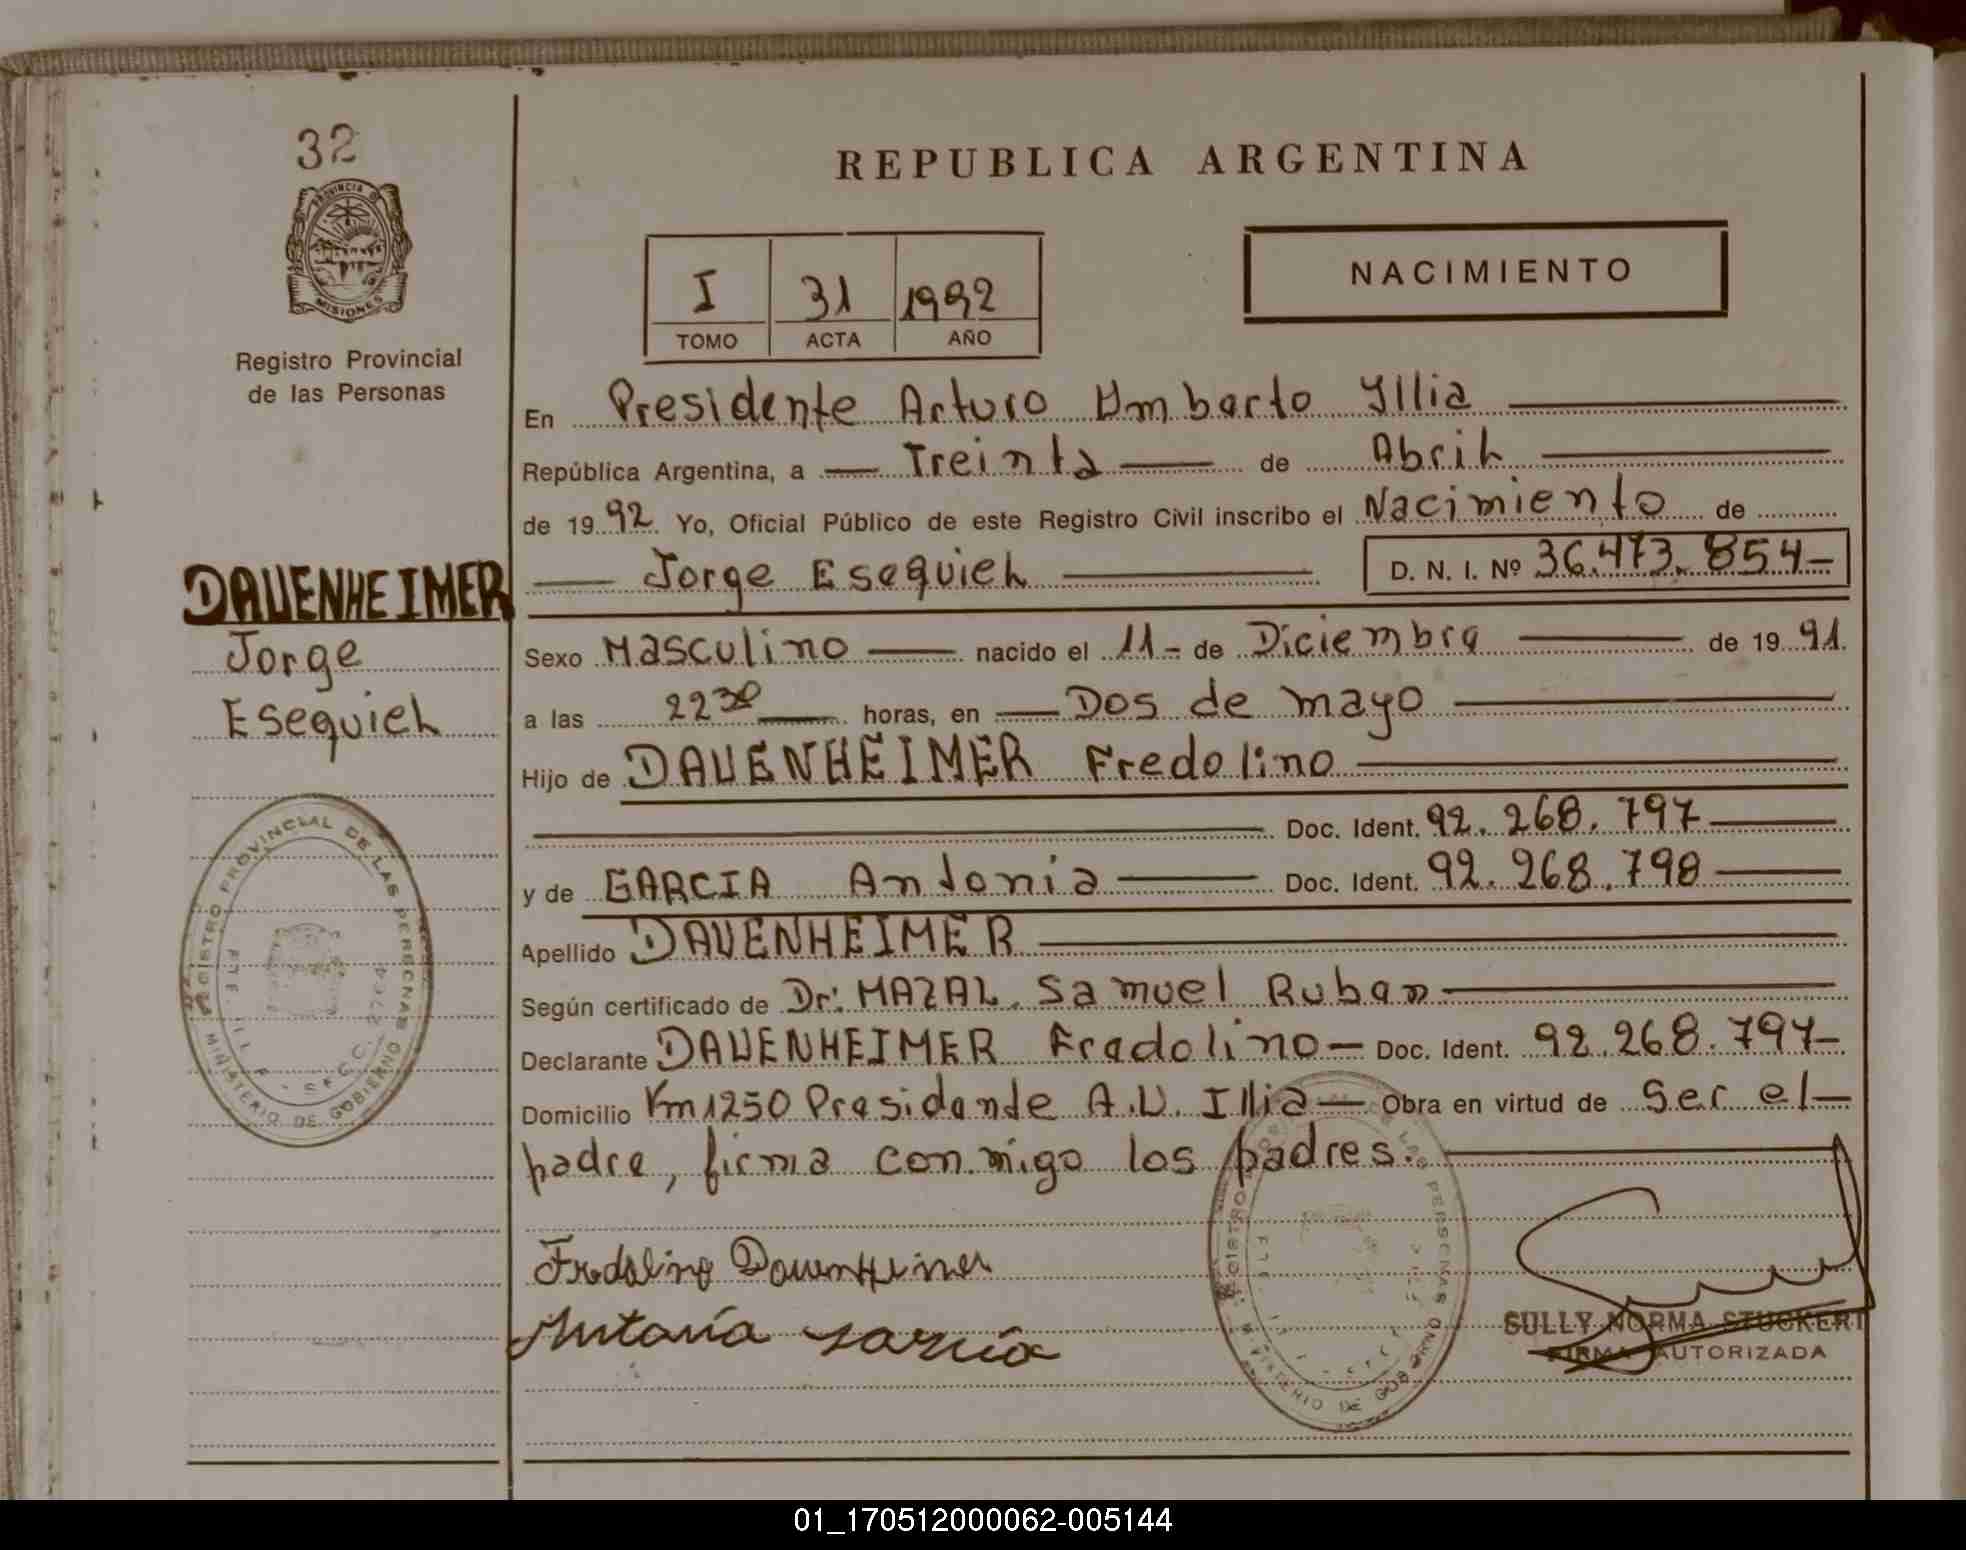 32
REPUBLICA ARGENTINA
PROVINCIA DE MISIONES
Registro Provincial
de las Personas
I 31 1992
TOMO ACTA AÑO
NACIMIENTO
En Presidente Arturo Umberto Illia
República Argentina, a Treinta de Abril
de 1992 Yo, Oficial Público de este Registro Civil inscribo el Nacimiento de
Jorge Esequiel D. N. I. Nº 36.473.854-
DAUENHEIMER
Jorge
Esequiel
Sexo Masculino nacido el 11- de Diciembre de 1991.
a las 22 30 horas, en Dos de mayo
Hijo de DAUENHEIMER Fredolino
Doc. Ident. 92.268.797
y de GARCIA Antonia Doc. Ident. 92.268.798
Apellido DAUENHEIMER
Según certificado de Dr: MAZAL Samuel Ruben
Declarante DAUENHEIMER Fredolino- Doc. Ident. 92.268.797-
Domicilio Km 1250 Presidente A.U. Illia- Obra en virtud de Ser el-
padre, firma conmigo los padres.
REGISTRO PROVINCIAL DE LAS PERSONAS
MINISTERIO DE GOBIERNO
Fredolino Dauenheimer
Antonia García
REGISTRO PERSONAS
MINISTERIO DE GOBIERNO
SULLY NORMA STUCKERT
FIRMA AUTORIZADA
01_170512000062-005144